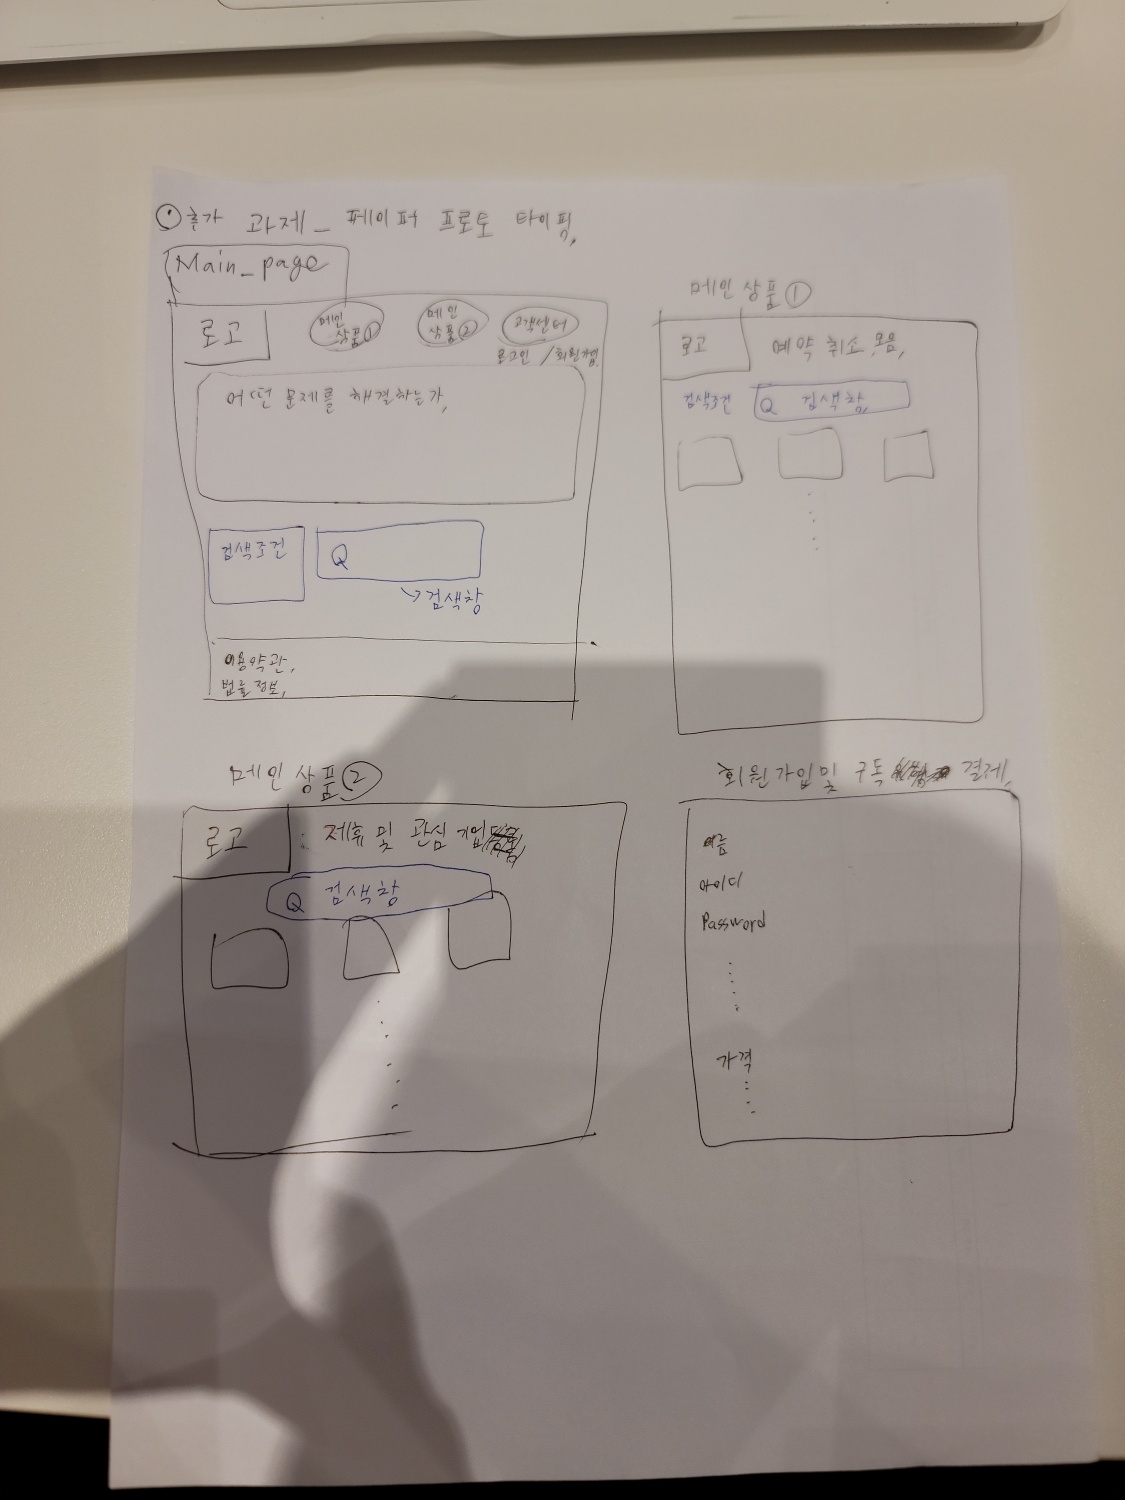 추가 과제_ 페이퍼 프로토 타이핑,
Main_page
로고
메인 상품①
메인 상품②
고객센터
로그인 / 회원가입
어떤 문제를 해결하는가,
검색조건
Q
→검색창
이용약관,
법률정보,
메인 상품①
로고
예약 취소 모음,
검색조건
Q 검색창
메인 상품②
로고
: 제휴 및 관심 기업
Q 검색창
회원가입 및 구독 결제,
이름
아이디
Password
가격